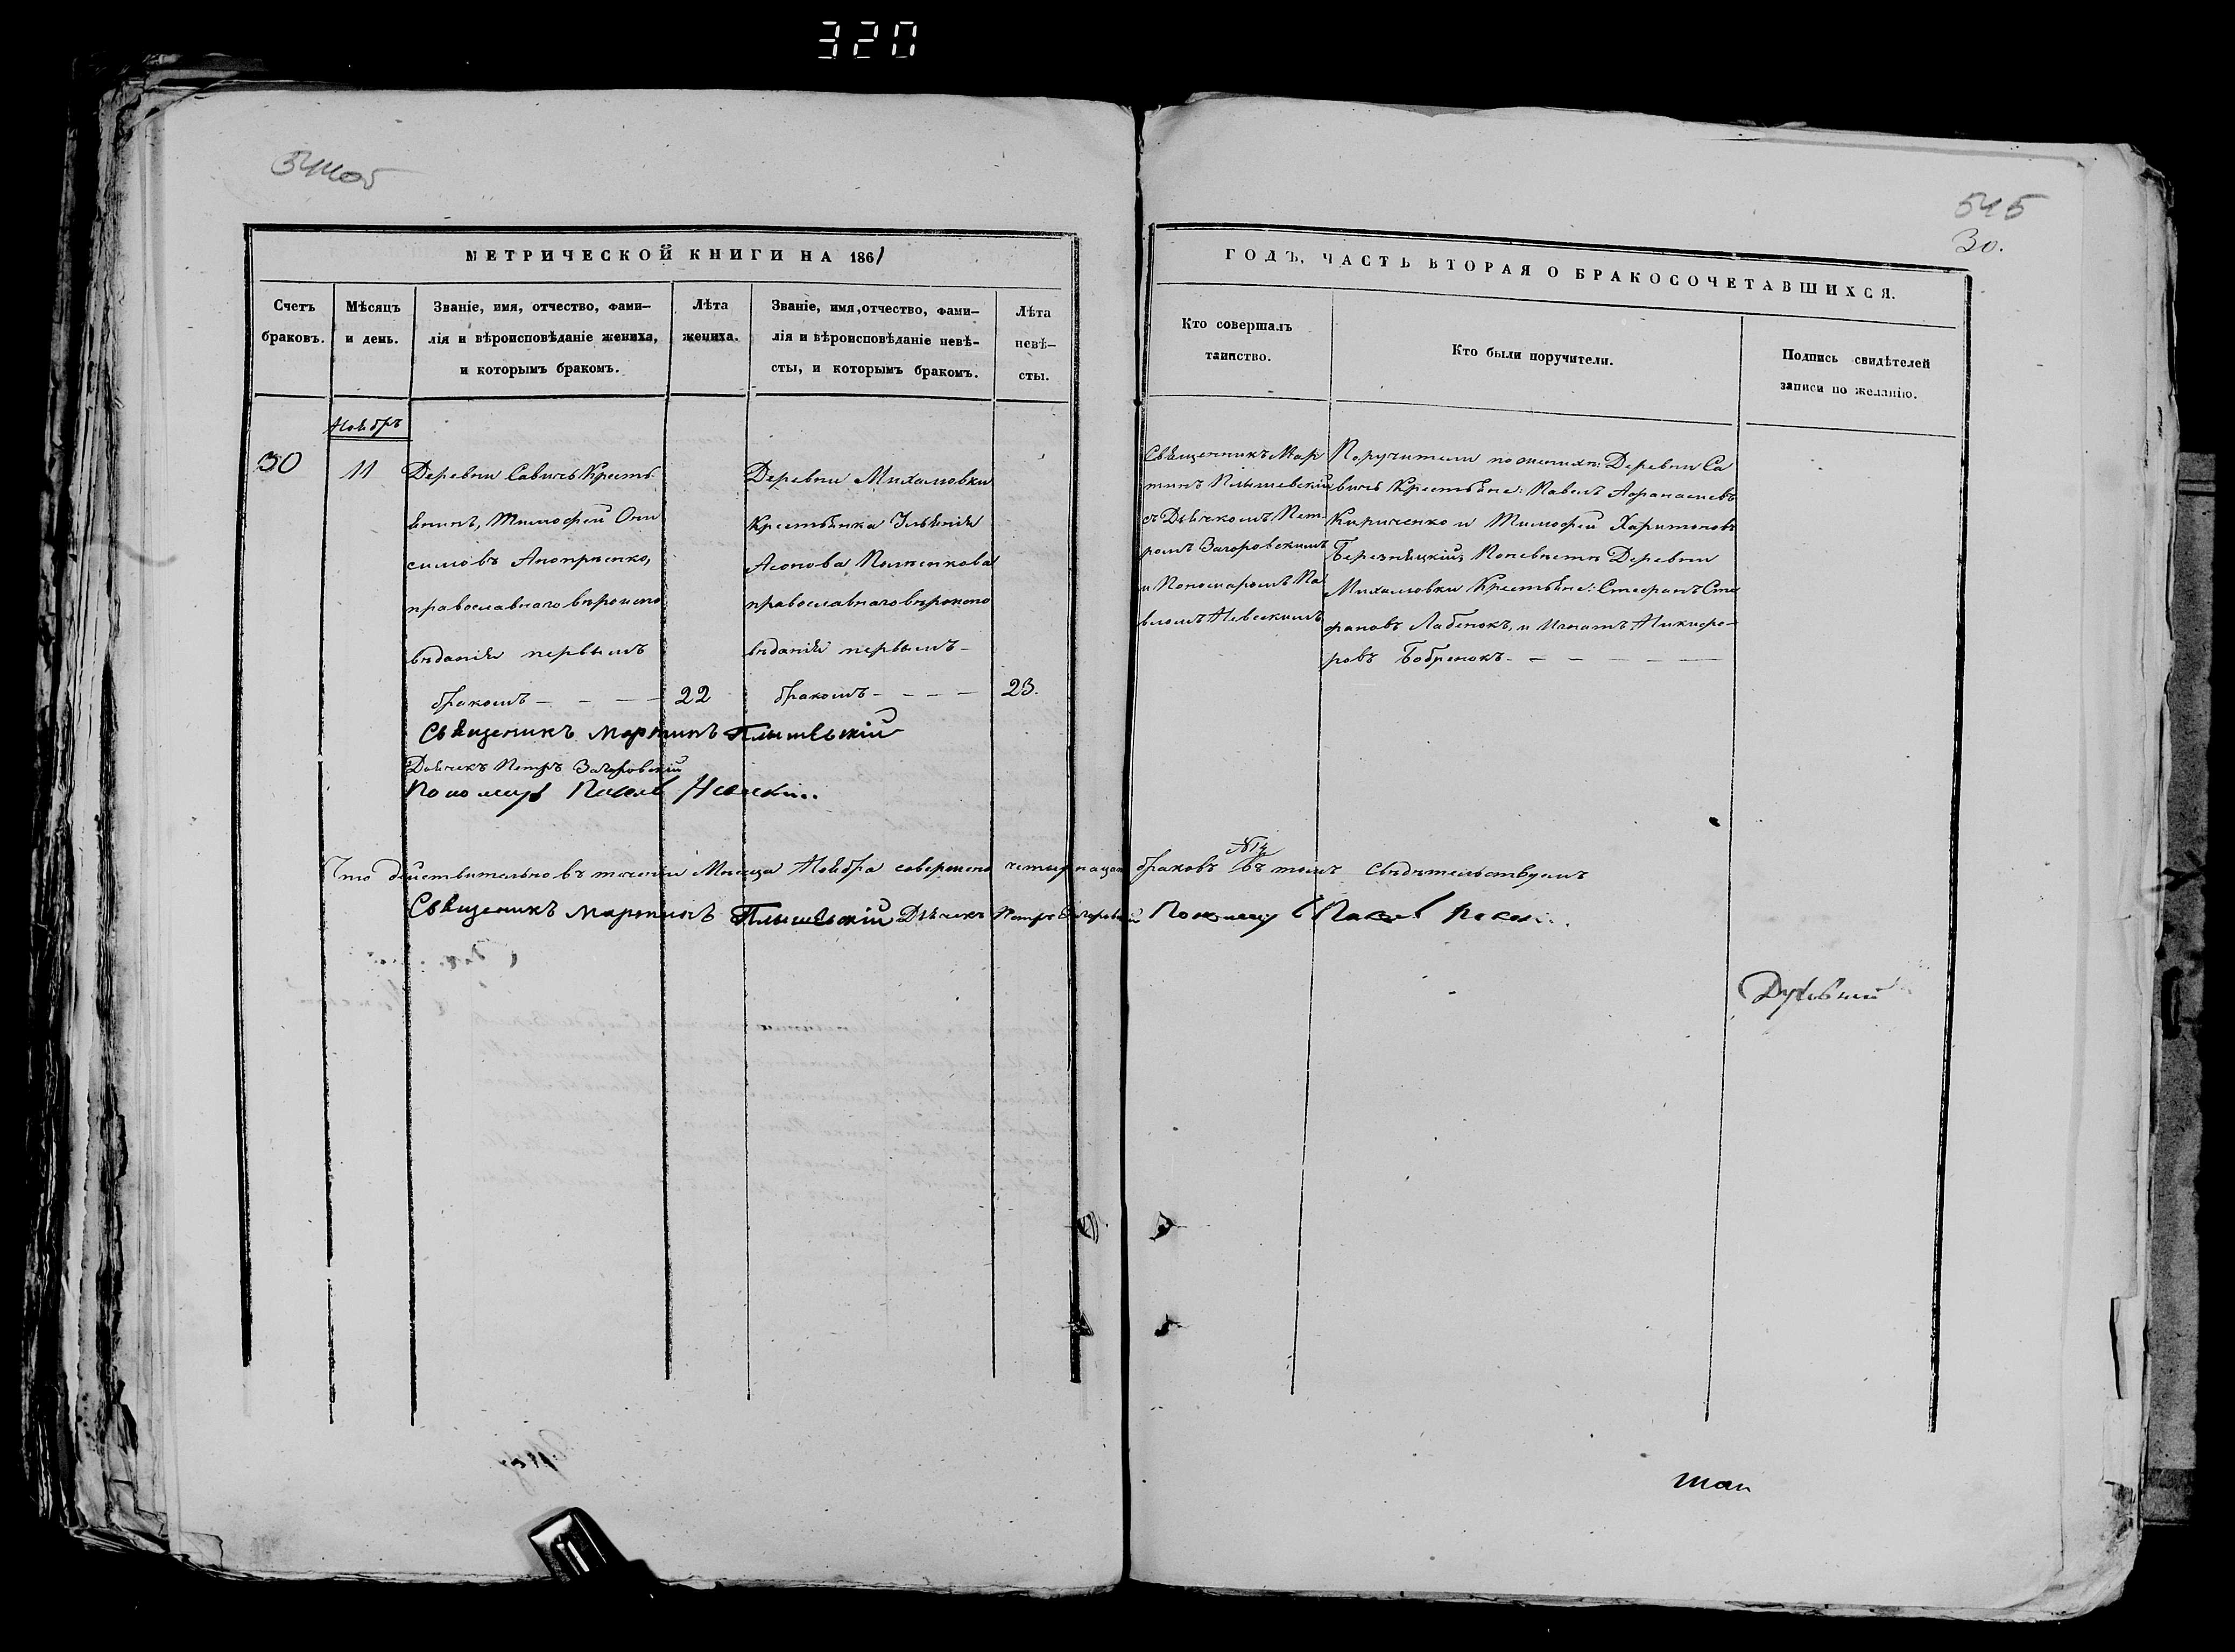 320
545
30.
МЕТРИЧЕСКОЙ КНИГИ НА 1861
ГОДЪ, ЧАСТЬ ВТОРАЯ О БРАКОСОЧЕТАВШИХСЯ.
Счетъ
браковъ.
Мѣсяцъ
и день.
Званіе, имя, отчество, фами–
лія и вѣроисповѣданіе жениха,
и которымъ бракомъ.
Лѣта
жениха.
Званіе, имя, отчество, фами–
лія и вѣроисповѣданіе невѣ–
сты, и которымъ бракомъ.
Лѣта
невѣ–
сты.
Кто совершалъ
таинство.
Кто были поручители.
Подпись свидѣтелей
записи по желанію.
Ноябрь
30
11
Деревни Савичь Кресть
янинъ, Тимофей Они
симовъ
православнаго вѣроиспо
вѣданія первымъ
бракомъ – – – –
22
Деревни Михаловки
Крестьянка
православнаго вѣроиспо
вѣданія первымъ –
бракомъ – – – –
23.
Священникъ Мар
тинъ Плышевскій
съ Дьячкомъ Пет
ромъ Загоровскимъ
и Пономаромъ Па
вломъ Невскимъ
Поручители по женихѣ: Деревни Са
вичь Крестьяне: Павелъ Афанасіевъ
Кириченко и Тимофей Харитоновъ
Березняцкій; По невѣстѣ Деревни
Михаловки Крестьяне: Стефанъ Сте
фановъ Лабенокъ, и Игнатъ Никифо–
ровъ Бобренокъ. – – – – –
Священикъ Мартинъ Плышевскій
Дьячекъ Петръ Загоровскій
Пономарь Павелъ Невскій
Что дѣйствительно въ теченіи Мѣсяца Ноября совершено четырнацать браковъ №14 въ томъ свидѣтельствуемъ
Священикъ Мартинъ Плышевскій Дьячекъ Петръ Загоровскій Пономарь Павелъ